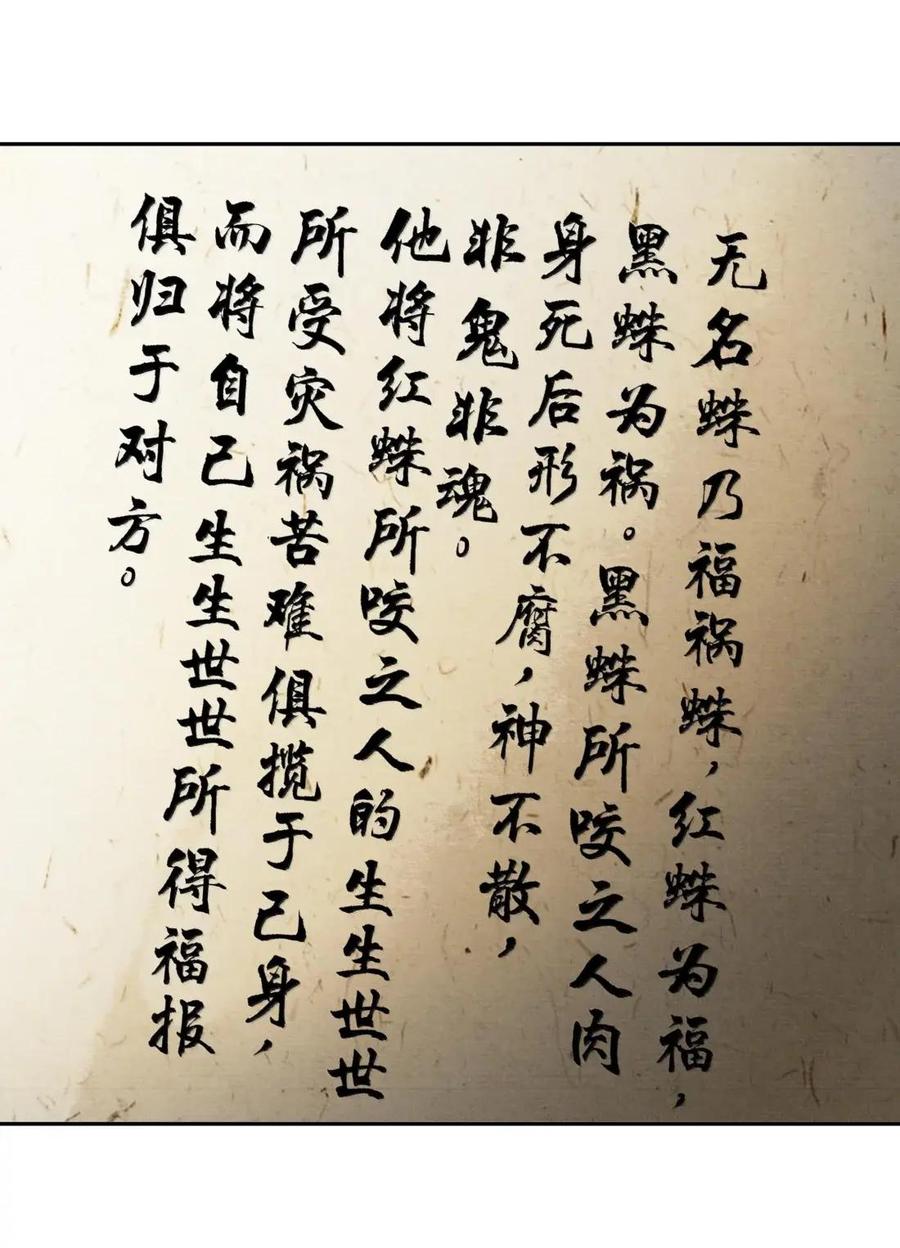 无名蝾乃福祸蝾，红蝾为福，
黑蝾为祸。黑蝾所咬之人肉
身死后形不腐，神不散，
非鬼非魂。
他将红蝾所咬之人的生生世世
所受灾祸苦难俱揽于己身，
而将自己生生世世所得福报
俱归于对方。